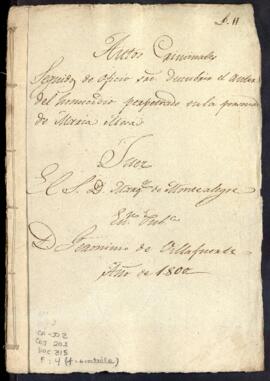 Autos Criminales
Seguidos de oficio sre descubrir el autor
del homicidio perpetrado en la persona
de Maria
Juez
El S. D. Marq.s de Montealegre
En.o Pub.co
D Geronimo de Villafuerte
Año de 1800
CA-JO2
CAJ 202
DOC 315
F: 4 (+ carátula)